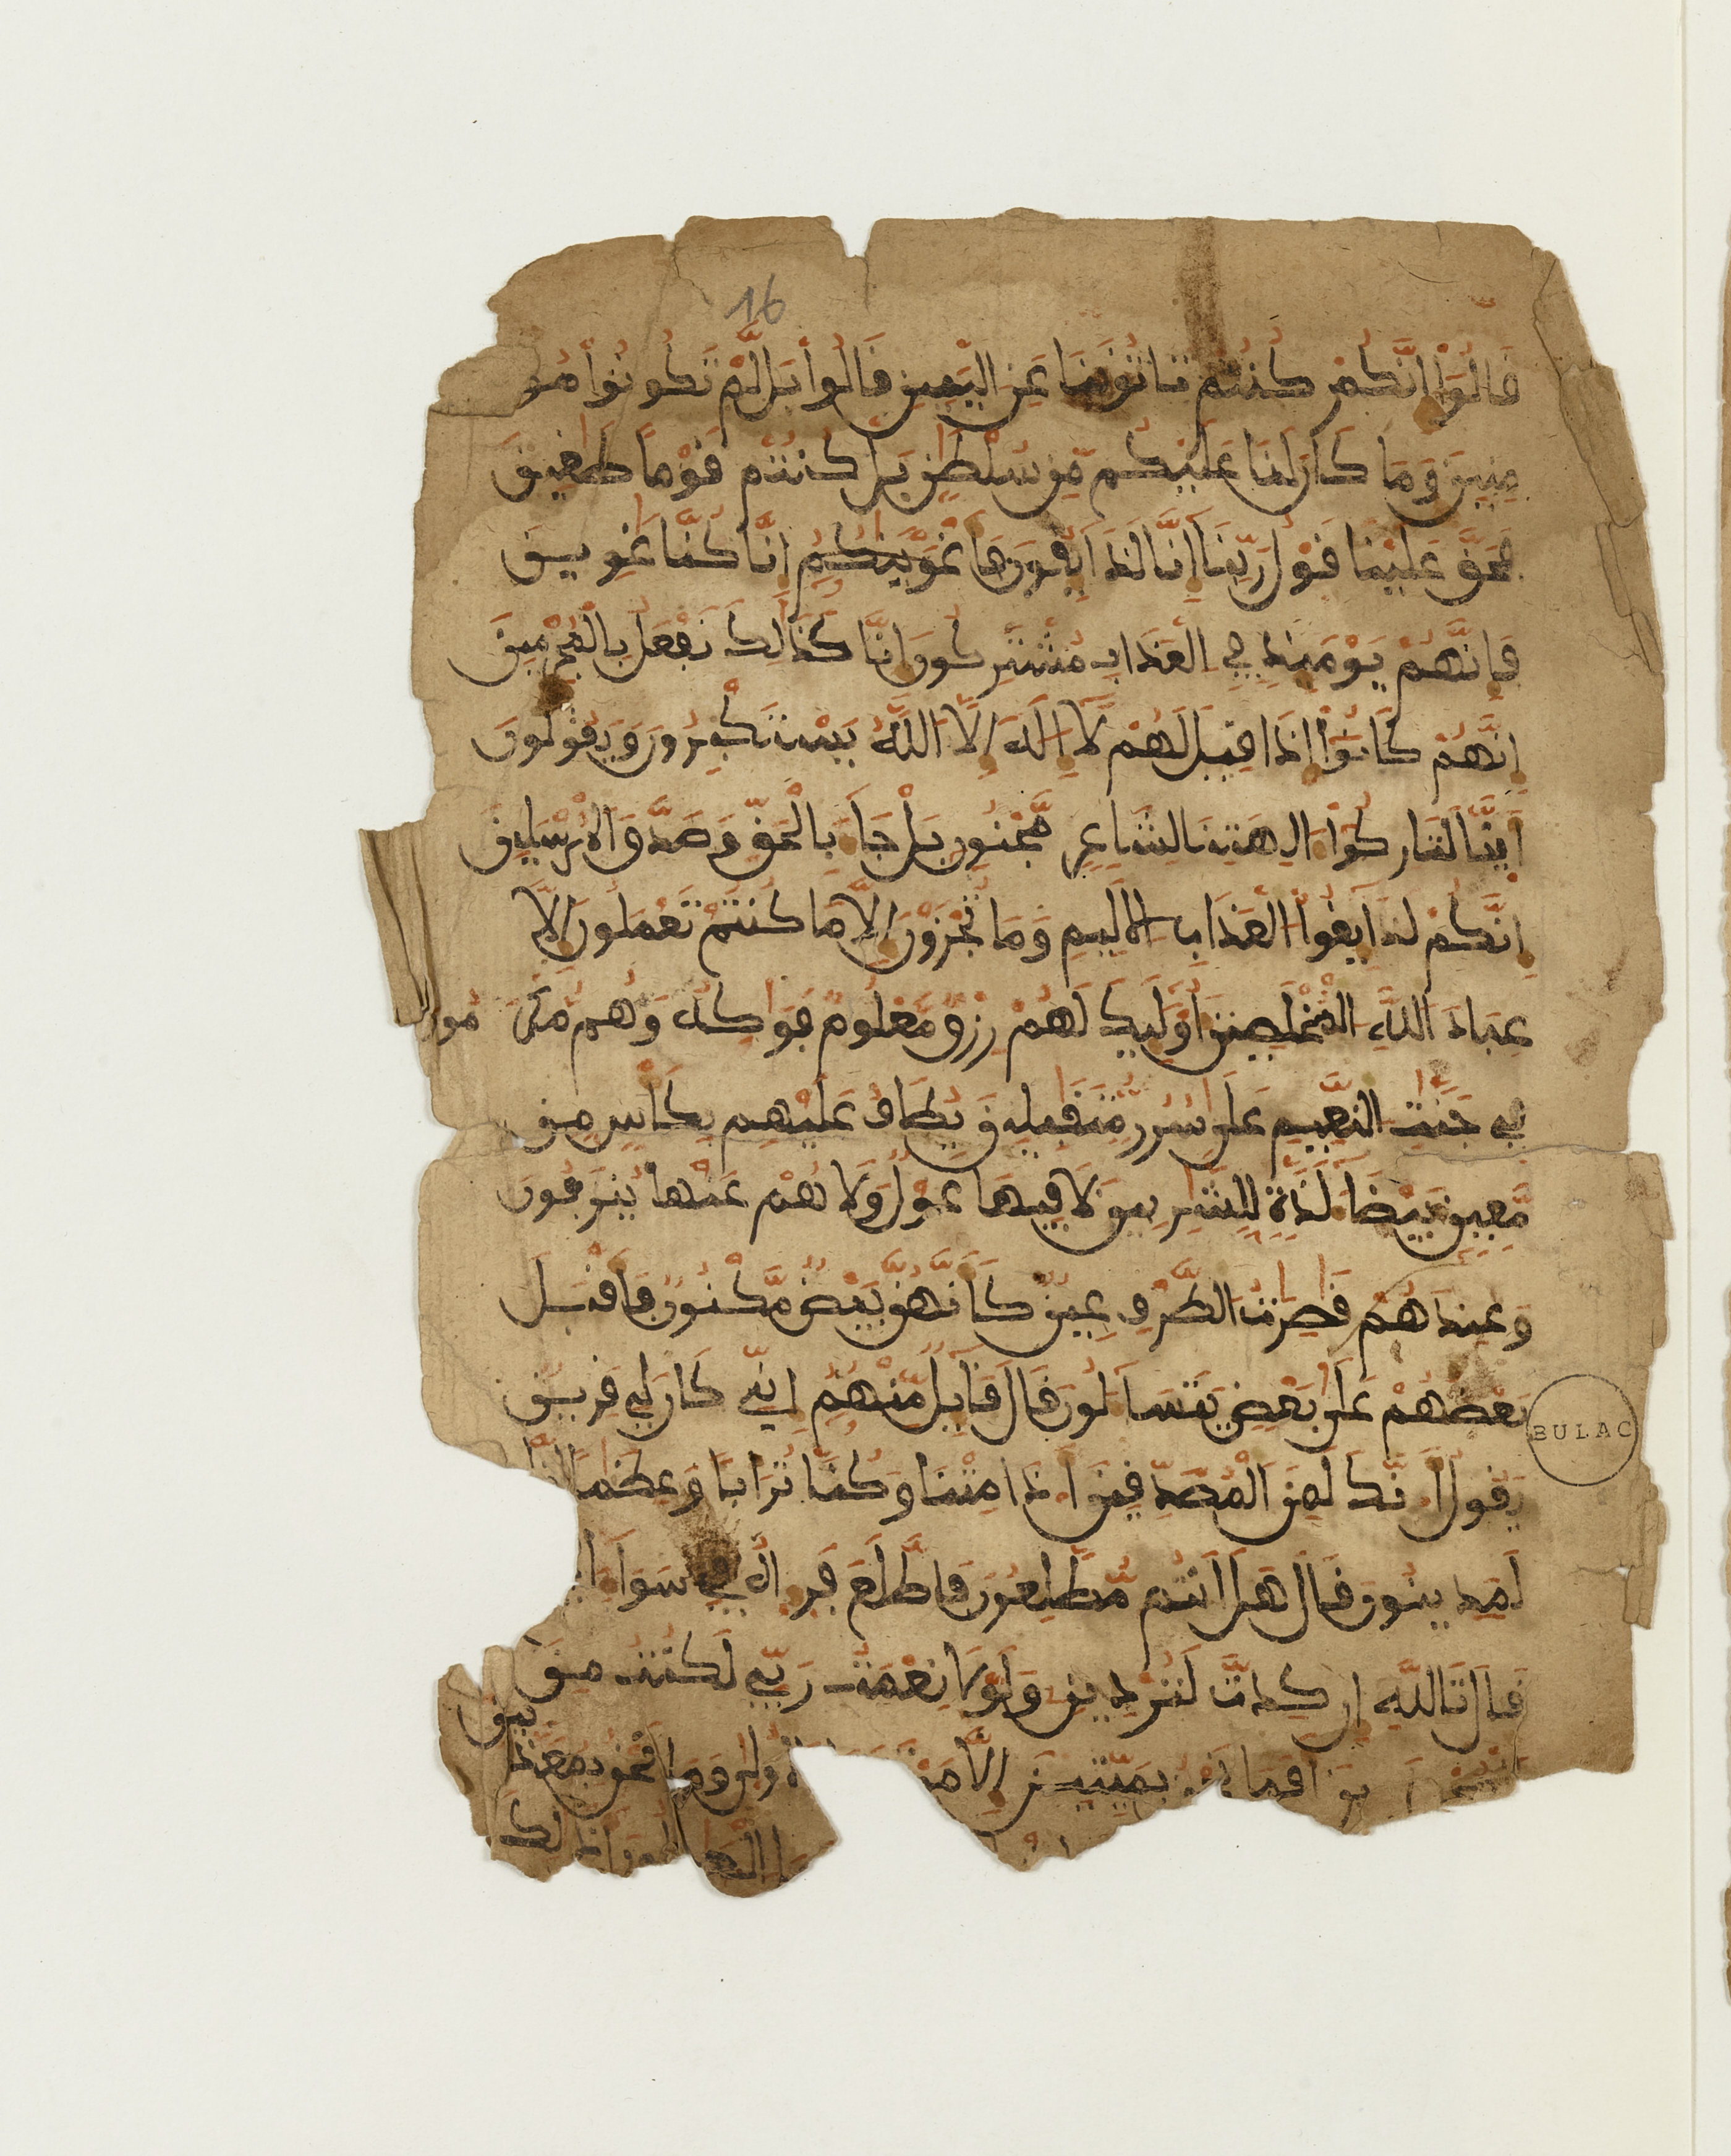 16
قَالُوٓاْ إِنَّكُمْ كُنتُمْ تَاتُونَنَا عَنِ الْيَمِينِ قَالُواْ بَل لَّمْ تَكُونُواْ مُو
مِنِينَ وَمَا كَانَ لَنَا عَلَيْكُم مِّن سُلْطَٰنٍ بَلْ كُنتُمْ قَوْماً طَٰغِينَ
فَحَقَّ عَلَيْنَا قَوْلُ رَبِّنَا إِنَّا لَذَآئِقُونَ فَأَغْوَيْنَٰكُمُ إِنَّا كُنَّا غَٰوِينَ
فَإِنَّهُمْ يَوْمَئِذٍ فِي الْعَذَابِ مُشْتَرِكُونَ إِنَّا كَذَٰلِكَ نَفْعَلُ بِالْمُجْرِمِينَ
إِنَّهُمْ كَانُوٓاْ إِذَا قِيلَ لَهُمْ لَآ إِلَٰهَ إِلَّا اللَّهُ يَسْتَكْبِرُونَ وَيَقُولُونَ
أَئِنَّا لَتَارِكُوٓاْ ءَالِهَتِنَا لِشَاعِرٍ مَّجْنُونٍ بَلْ جَآءَ بِالْحَقِّ وَصَدَّقَ الْمُرْسَلِينَ
إِنَّكُمْ لَذَآئِقُواْ الْعَذَابِ الْأَلِيمِ وَمَا تُجْزَوْنَ إِلَّا مَا كُنتُمْ تَعْمَلُونَ إِلَّا
عِبَادَ اللَّهِ الْمُخْلَصِينَ أُوْلَٰٓئِكَ لَهُمْ رِزْقٌ مَّعْلُومٌ فَوَٰكِهُ وَهُم مُّكْرَمُونَ
فِي جَنَّٰتِ النَّعِيمِ عَلَىٰ سُرُرٍ مُّتَقَٰبِلِينَ يُطَافُ عَلَيْهِم بِكَأْسٍ مِّن
مَّعِينٍ بَيْضَآءَ لَذَّةٍ لِّلشَّٰرِبِينَ لَا فِيهَا غَوْلٌ وَلَا هُمْ عَنْهَا يُنزَفُونَ
وَعِندَهُمْ قَٰصِرَٰتُ الطَّرْفِ عِينٌ كَأَنَّهُنَّ بَيْضٌ مَّكْنُونٌ فَأَقْبَلَ
بَعْضُهُمْ عَلَىٰ بَعْضٍ يَتَسَآءَلُونَ قَالَ قَآئِلٌ مِّنْهُمُ إِنِّي كَانَ لِي قَرِينٌ
يَقُولُ أَ۟نَّكَ لَمِنَ الْمُصَدِّقِينَ أَ۟ذَا مِتْنَا وَكُنَّا تُرَاباً وَعِظَٰماً إِنَّا
لَمَدِينُونَ قَالَ هَلَ أَنتُم مُّطَّلِعُونَ فَاطَّلَعَ فَرَءَاهُ فِي سَوَآءِ
قَالَ تَاللَّهِ إِن كِدتَّ لَتُرْدِينِ وَلَوْلَا نِعْمَةُ رَبِّي لَكُنتُ مِنَ
الْمُحْضَرِينَ أَفَمَا نَحْنُ بِمَيِّتِينَ إِلَّا مَوْ الْأُولَىٰ وَمَا نَحْنُ بِمُعَذَّبِينَ
الْعَٰمِلُونَ أَذَٰلِكَ
BULAC